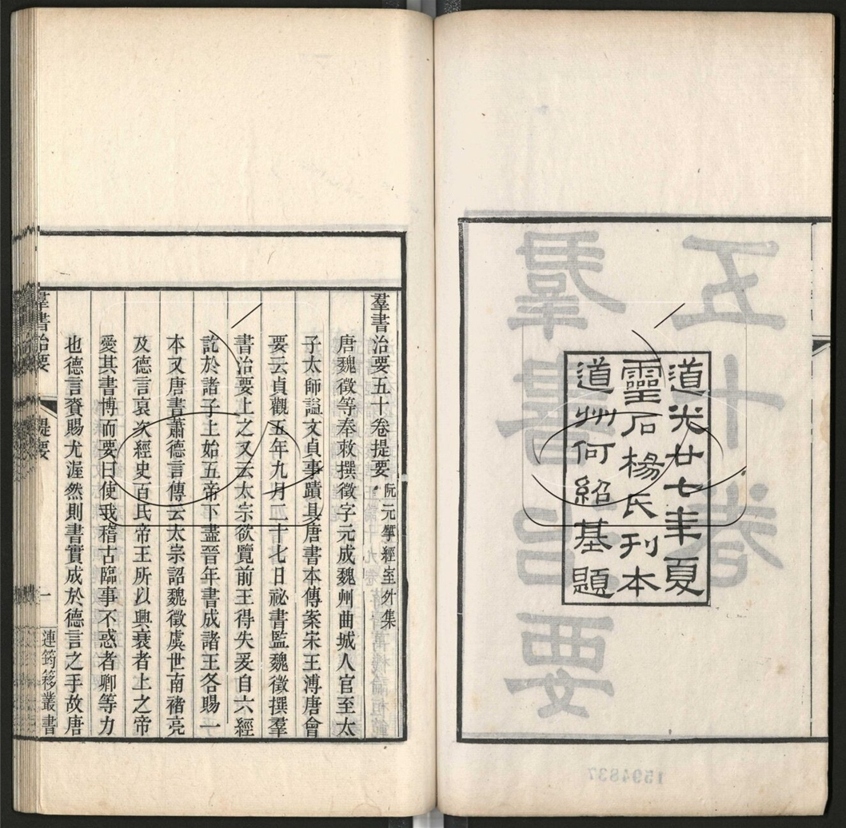 羣書治要
五十卷
道光廿七年夏
靈石楊氏刊本
道州何紹基題
羣書治要五十卷提要 阮元揅經室外集
唐魏徵等奉敕撰徵字元成魏州曲城人官至太
子太師諡文貞事蹟具唐書本傳案宋王溥唐會
要云貞觀五年九月二十七日祕書監魏徵撰羣
書治要上之又云太宗欲覽前王得失爰自六經
訖於諸子上始五帝下盡晉年書成諸王各賜一
本又唐書蕭德言傳云太宗詔魏徵虞世南褚亮
及德言裒次經史百氏帝王所以興衰者上之帝
愛其書博而要曰使我稽古臨事不惑者卿等力
也德言賚賜尤渥然則書實成於德言之手故唐
羣書治要 提要 一 連筠簃叢書